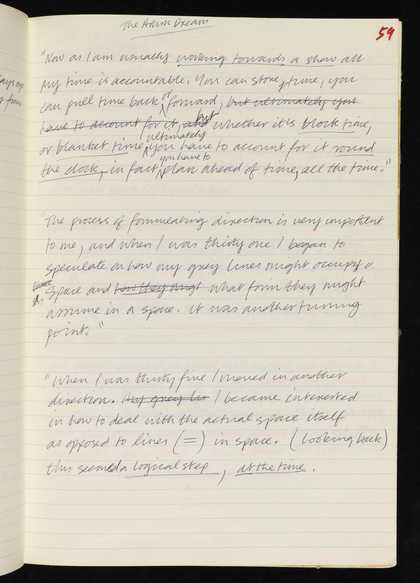 The Artists Dream
59
"Now as I am usually working towards a show all
my time is accountable. You can store time, you
can pull time back or forward, but ultimately you
have to account for it, and but whether it is block time,
or blanket time, ultimately you have to account for it round
the clock, in fact, you have to plan ahead of time, all the time."
The process of formulating direction is very important
to me, and when I was thirty one I began to
speculate on how my grey lines might occupy a
space and how they might what form they might
assume in a space. it was another turning
point."
"When I was thirty five I moved in another
direction. My grey lin I became interested
in how to deal with the actual space itself
as opposed to lines (=) in space. (looking back)
this seemed a logical step, at the time.